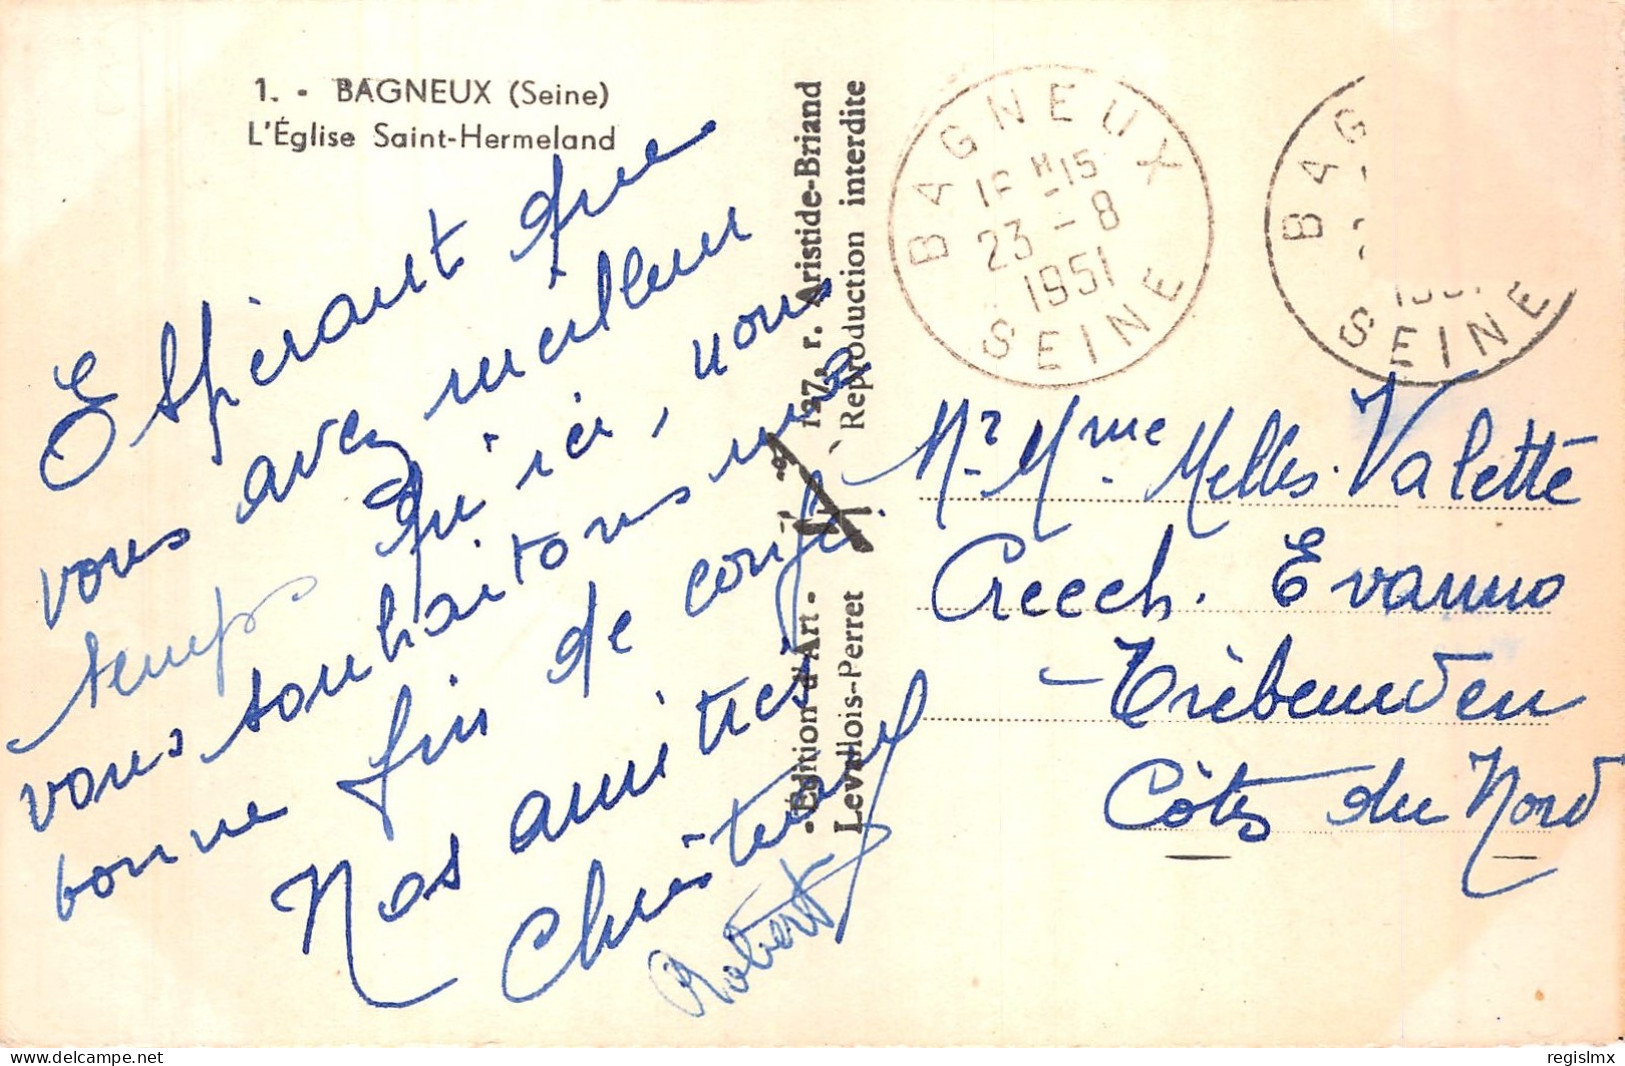 1. - BAGNEUX (Seine)
L'Église Saint-Hermeland
Espérant que
vous avez meilleur
temps qu'ici, nous
vous souhaitons une
bonne fin de congé.
Nos amitiés
Robert
- Édition d'Art -
Levallois-Perret
127, r. Aristide-Briand
Reproduction interdite
BAGNEUX
16 H 15
23 - 8
1951
SEINE
BAG
SEINE
Mr. Mme. Melles. Valette
Creech. Evanno
Trébeurden
Côtes du Nord
regislmx